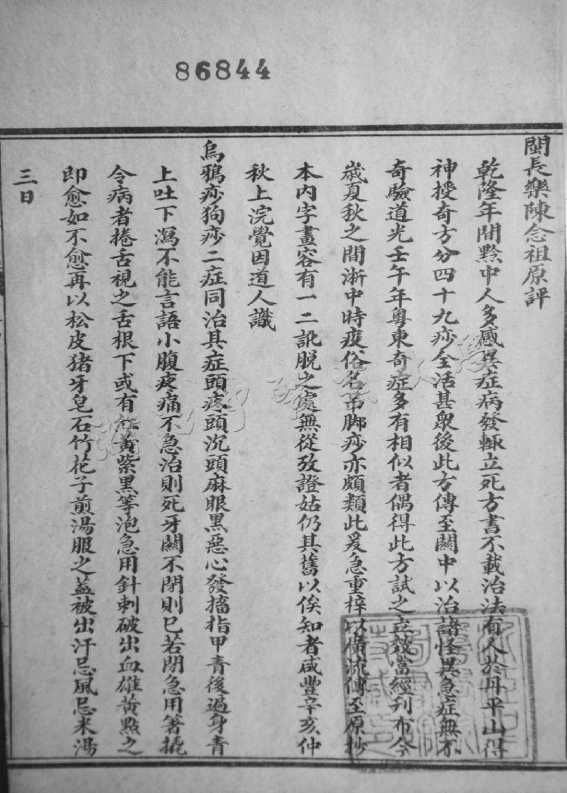 86844
閩長樂陳念祖原評
乾隆年間黔中人多感異症病發輒立死方書不載治法有人於丹平山得
神授奇方分四十九痧全活甚衆後此方傳至關中以治諸怪異急症無不
奇驗道光壬午年粤東奇症多有相似者偶得此方試之立效當經刊布今
歲夏秋之間浙中時疫俗名吊脚痧亦頗類此爰急重梓以廣流傳至原抄
本內字畫容有一二訛脱之處無從攷證姑仍其舊以俟知者咸豐辛亥仲
秋上浣覺因道人識
烏鴉痧狗痧二症同治其症頭疼頭沉頭麻眼黑惡心發搐指甲青後遍身青
上吐下瀉不能言語小腹疼痛不急治則死牙關不閉則已若閉急用箸撬
令病者捲舌視之舌根下或有紅黃紫黑等泡急用針刺破出血雄黃點之
即愈如不愈再以松皮猪牙皂石竹花子煎湯服之蓋被出汗忌風忌米湯
三日